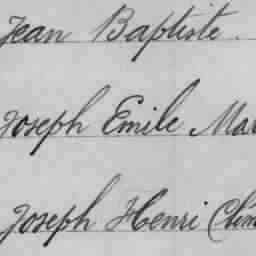 Jean Baptiste.
Joseph Emile
Joseph Henri